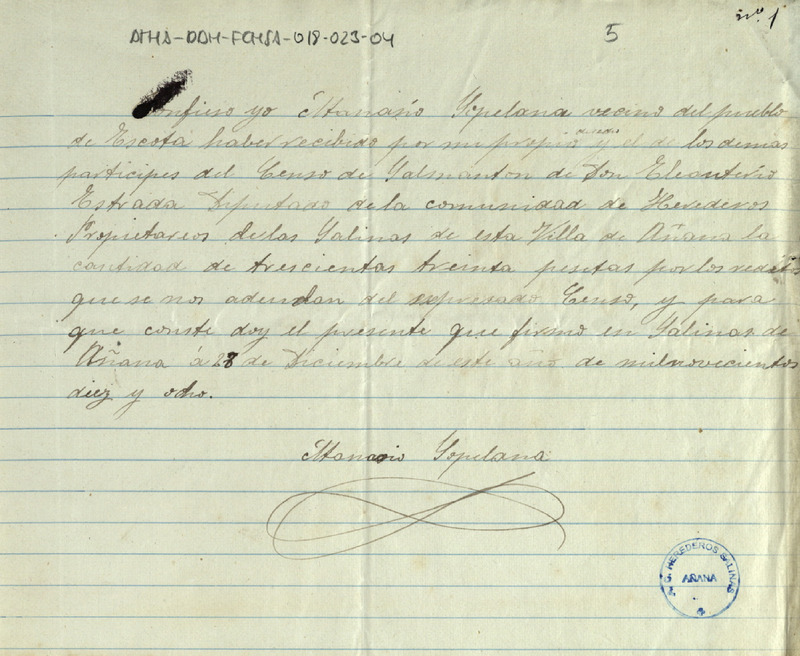 Nº 1
ATHA-DAH-FCHSA-018-023-04
5
Confieso yo Atanasio Sopelana vecino del pueblo
de Escota haber recibido por mi propio y el de los demas
participes del Censo de Salmanton de Don Eleauterio
Estrada Diputado de la comunidad de Herederos
Propietareos de las Salinas de esta Villa de Añana la
cantidad de trescientas treinta pesetas por los redit
que se nos adeudan del espresado Censo, y para
que conste doy el presente que firmo en Salinas de
Añana á 28 de Diciembre de este año de milnovecientos
diez y ocho.
Atanasio Sopelana
HEREDEROS SALINAS
AÑANA